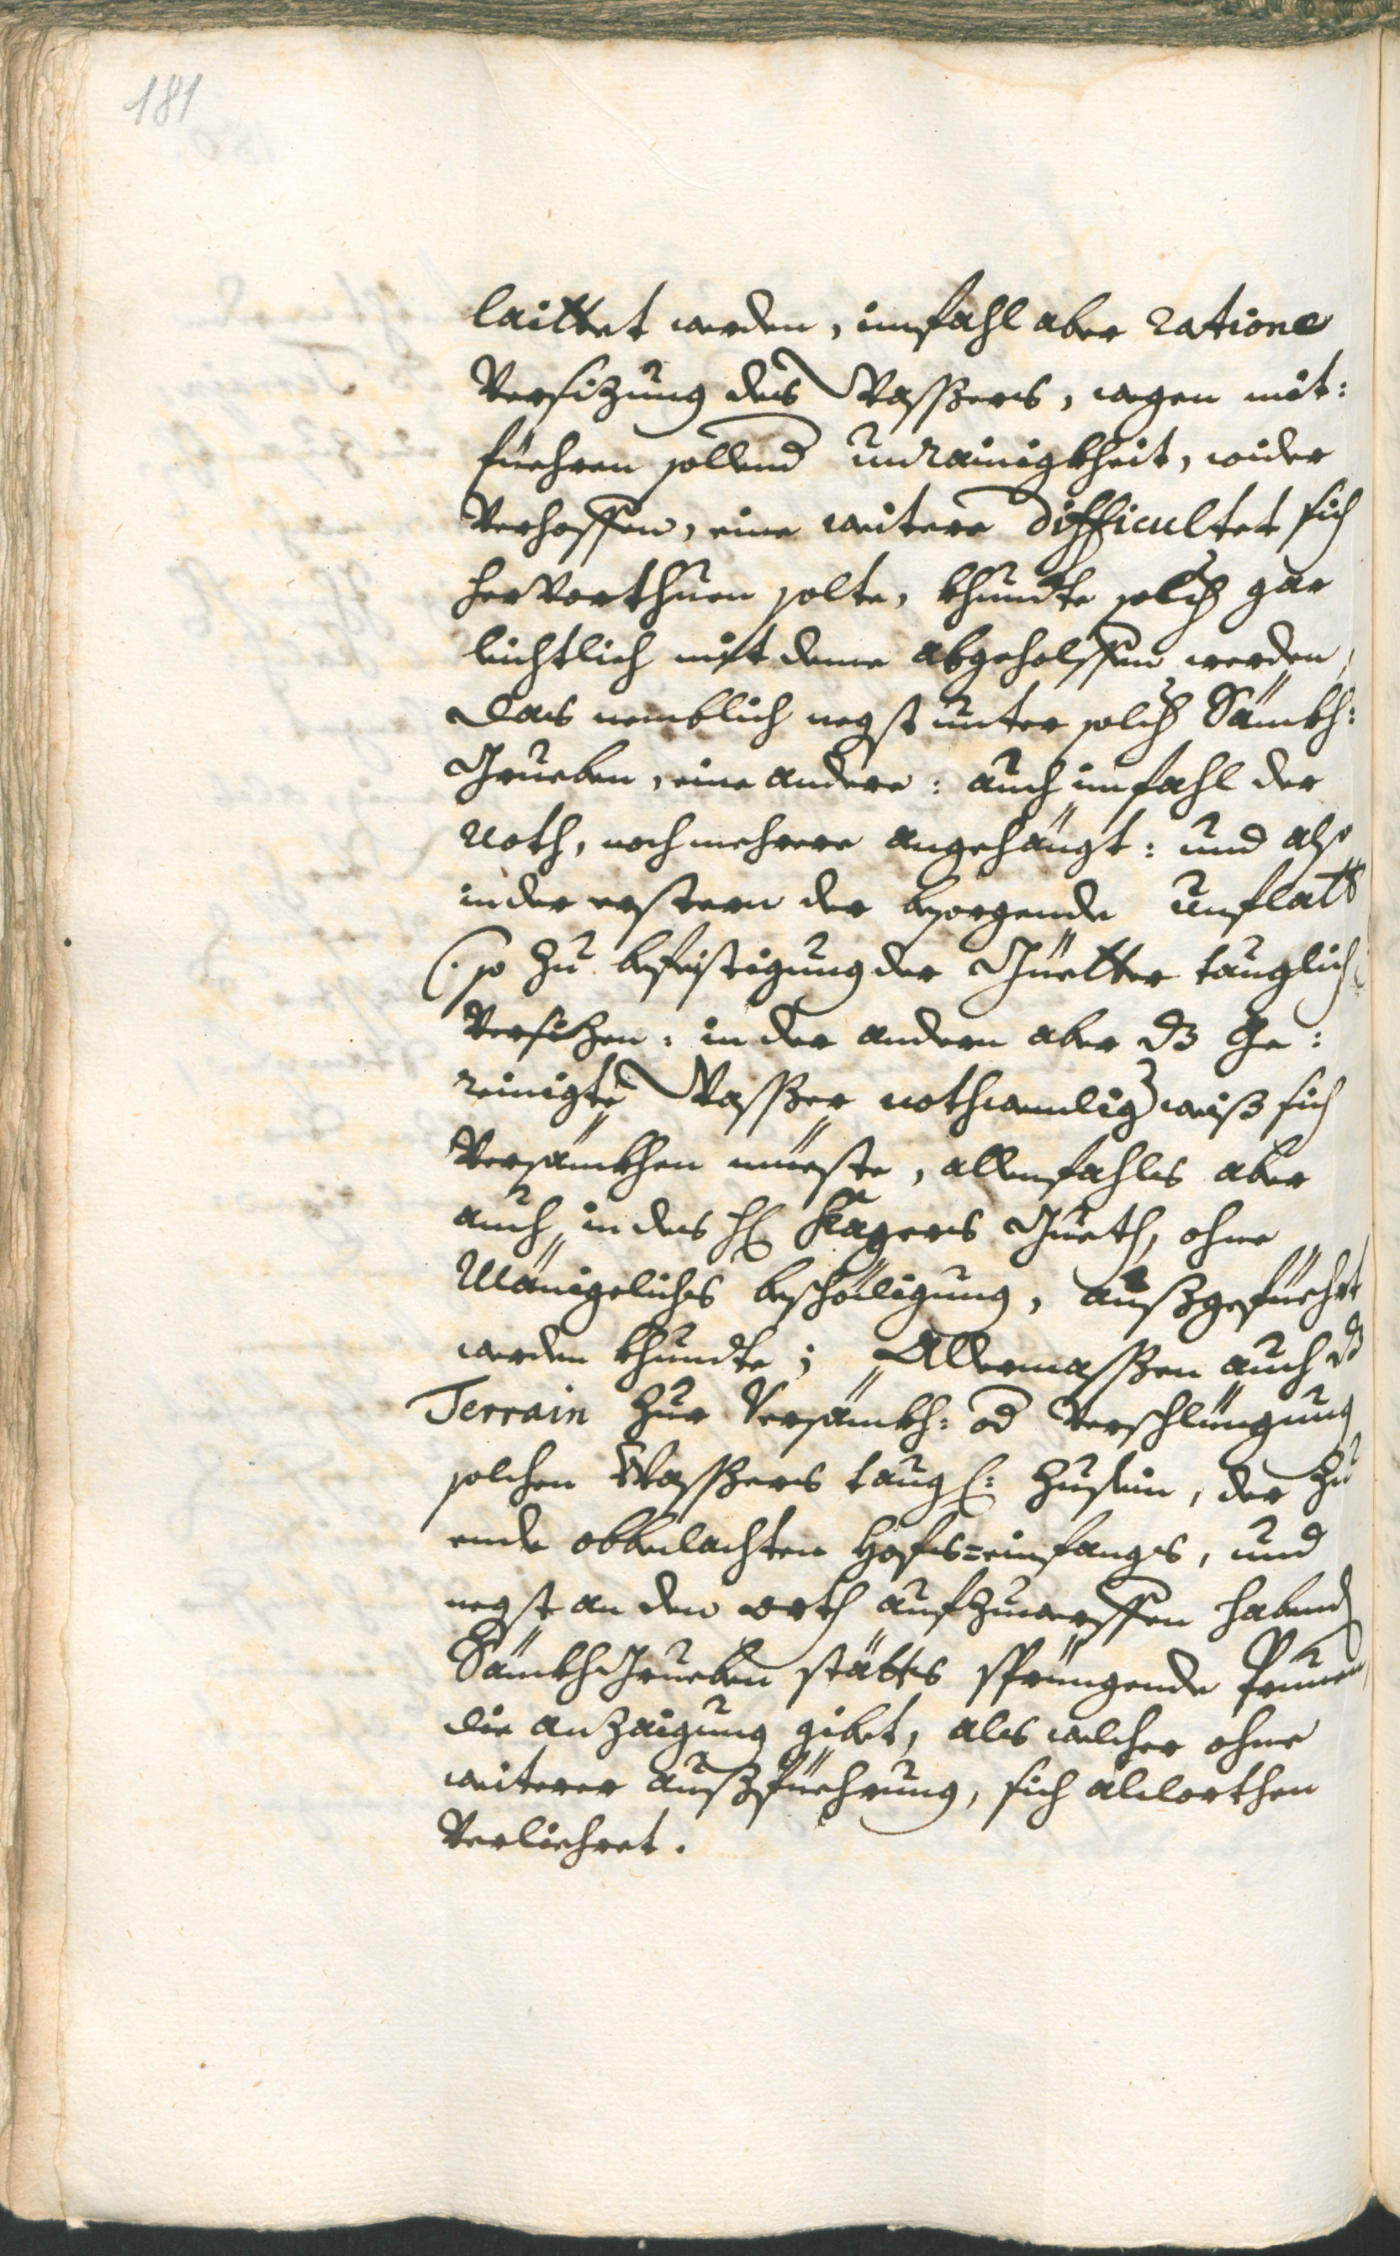 181
laittet werden, imfahl aber ratione
Versizung des Wassers, wegen mit:
füehren sollend unrainigkheit, wider
Verhoffen, eine weitere difficultet sich
hervorthuen solte, khundte solch gar
leichtlich mit deme abgeholffen werden,
das nemblich negst unter solch Sänkh:
Grueben, eine andere: auch imfahl der
Noth, noch mehrere angehängt: und also
in der erstern der besorgende unflatt
(: so zu befeistigung der Güetter tauglich
Versitzen: in der andern aber dz Ge:
reinigte Wasser nothwendig weiß sich
Versänkhen müeste, allenfahls aber
auch in des H: Kägers Gueth, ohne
Mänigeliches beschödigung, außgefüehrt
werden khundte; Allermassen auch dz
Terrain zur Versänkh: od Verschlüngung
solchen Wassers taugl: zusein, der zu
ende obbedachten hofs=einfangs, und
negst an den orth aufzuwerffen habend
Sänkh Grueben stätts sprüngende Prunen
die anzaigung gibet, als welcher ohne
weiterer außfüehrung, sich aldorthen
Verliehret.